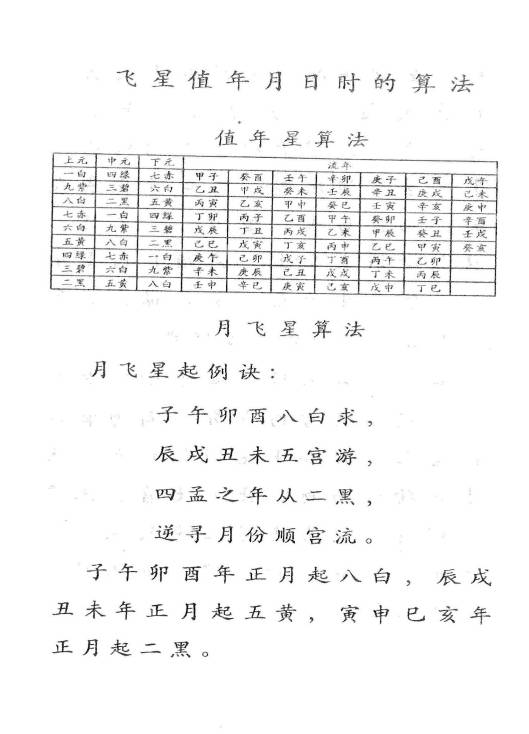 飞星值年月日时的算法
值年星算法
上元 中元 下元 流年
一白 四绿 七赤 甲子 癸酉 壬午 辛卯 庚子 己酉 戊午
九紫 三碧 六白 乙丑 甲戌 癸未 壬辰 辛丑 庚戌 己未
八白 二黑 五黄 丙寅 乙亥 甲申 癸巳 壬寅 辛亥 庚申
七赤 一白 四绿 丁卯 丙子 乙酉 甲午 癸卯 壬子 辛酉
六白 九紫 三碧 戊辰 丁丑 丙戌 乙未 甲辰 癸丑 壬戌
五黄 八白 二黑 己巳 戊寅 丁亥 丙申 乙巳 甲寅 癸亥
四绿 七赤 一白 庚午 己卯 戊子 丁酉 丙午 乙卯
三碧 六白 九紫 辛未 庚辰 己丑 戊戌 丁未 丙辰
二黑 五黄 八白 壬申 辛巳 庚寅 己亥 戊申 丁巳
月飞星算法
月飞星起例诀：
子午卯酉八白求，
辰戌丑未五宫游，
四孟之年从二黑，
逆寻月份顺宫流。
子午卯酉年正月起八白，辰戌
丑未年正月起五黄，寅申巳亥年
正月起二黑。